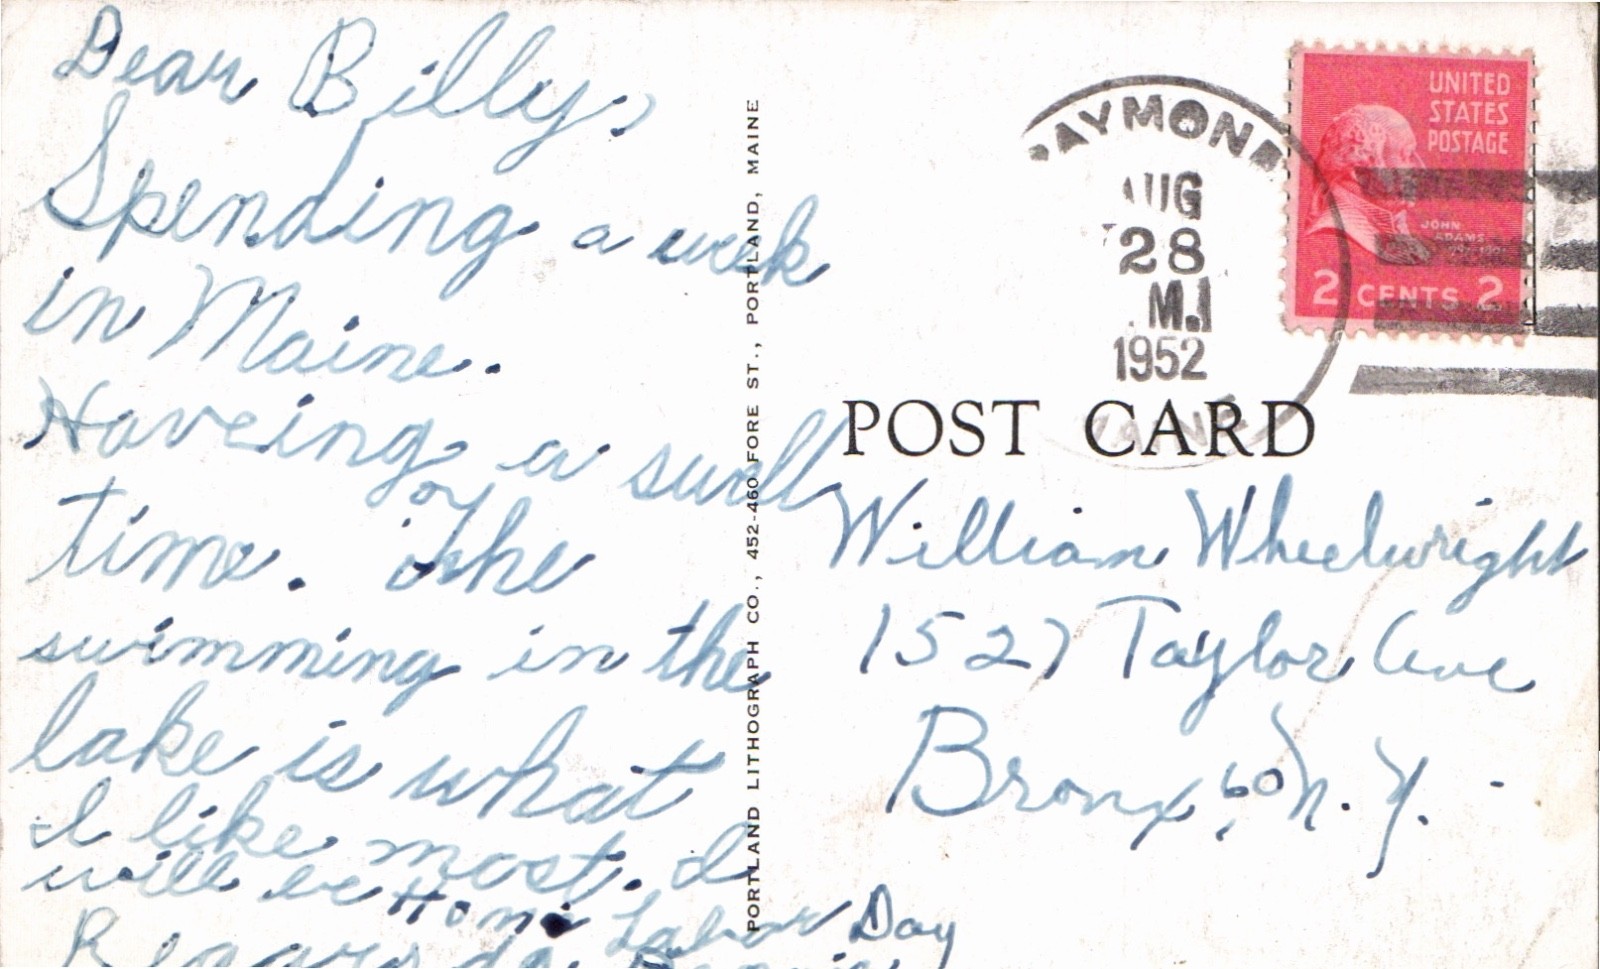 Dear Billy,
Spending a week
in Maine.
Haveing a swell
time. The
swimming in the
lake is what
I like most. I
will be Home Labor Day
Regards
PORTLAND LITHOGRAPH CO., 452-460 FORE ST., PORTLAND, MAINE
AUG
28
1952
UNITED
STATES
POSTAGE
JOHN
ADAMS
2 CENTS 2
POST CARD
William Wheelwright
1527 Taylor Ave
Bronx, 60 N. Y.